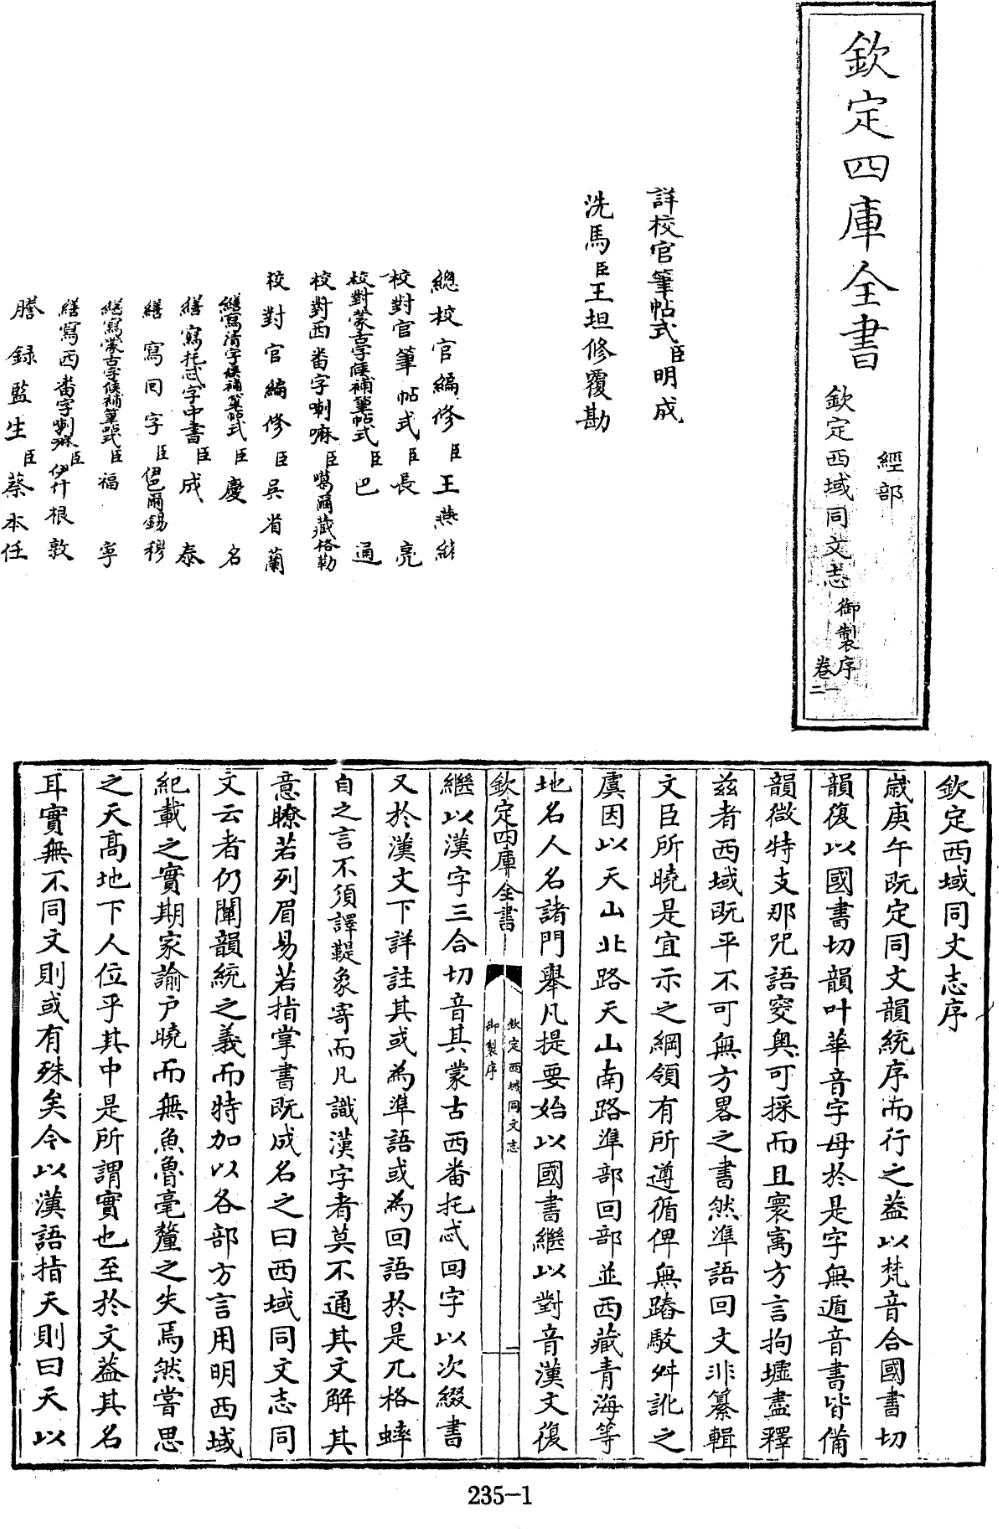 欽定四庫全書
經部
欽定西域同文志 御製序 卷一 二
詳校官筆帖式臣明成
洗馬臣王坦修覆勘
總校官編修臣王燕緒
校對官筆帖式臣長亮
校對蒙古字候補筆帖式臣巴通
校對西番字喇嘛臣噶爾藏格勒
校對官編修臣吳省蘭
繕寫清字候補筆帖式臣慶名
繕寫托忒字中書臣成泰
繕寫回字臣伊巴爾錫穆
繕寫蒙古字候補筆帖式臣福寧
繕寫西番字喇嘛臣伊什根敦
謄錄監生臣蔡本任
欽定西域同文志序
嵗庚午既定同文韻統序而行之葢以梵音合國書切
韻復以國書切韻叶華音字母於是字無遁音書皆備
韻微特支那咒語窔奥可採而且寰寓方言拘墟盡釋
兹者西域既平不可無方畧之書然準語回文非纂輯
文臣所曉是宜示之綱領有所遵循俾無踳駁舛訛之
虞因以天山北路天山南路準部回部並西藏青海等
地名人名諸門舉凡提要始以國書繼以對音漢文復
欽定四庫全書
欽定西域同文志
御製序
一
繼以漢字三合切音其蒙古西番托忒回字以次綴書
又於漢文下詳註其或為準語或為回語於是兀格蟀
自之言不須譯鞮象寄而凡識漢字者莫不通其文解其
意瞭若列眉易若指掌書既成名之曰西域同文志同
文云者仍闡韻統之義而特加以各部方言用明西域
紀載之實期家諭户曉而無魚魯毫釐之失焉然嘗思
之天高地下人位乎其中是所謂實也至於文葢其名
耳實無不同文則或有殊矣今以漢語指天則曰天以
235-1